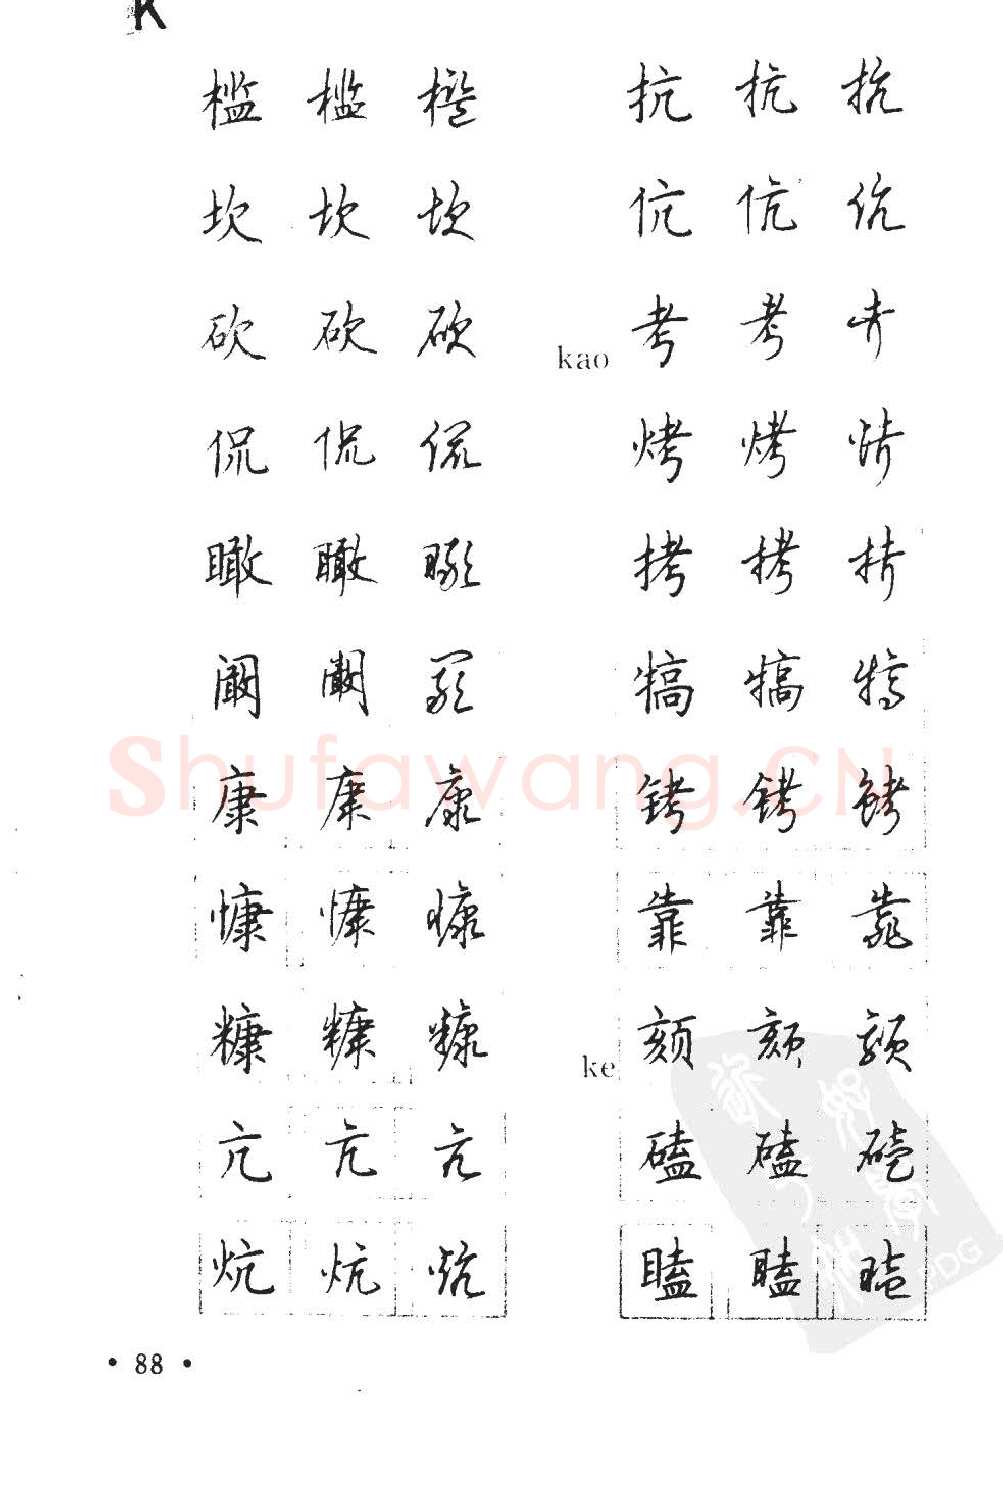 K
槛 槛 槛
坎 坎 坎
砍 砍 砍
侃 侃 侃
瞰 瞰 瞰
阚 阚 阚
康 康 康
慷 慷 慷
糠 糠 糠
亢 亢 亢
炕 炕 炕
抗 抗 抗
伉 伉 伉
kao 考 考 考
烤 烤 烤
拷 拷 拷
犒 犒 犒
铐 铐 铐
靠 靠 靠
ke 颏 颏 颏
磕 磕 磕
瞌 瞌 瞌
• 88 •
Shufawang.CN